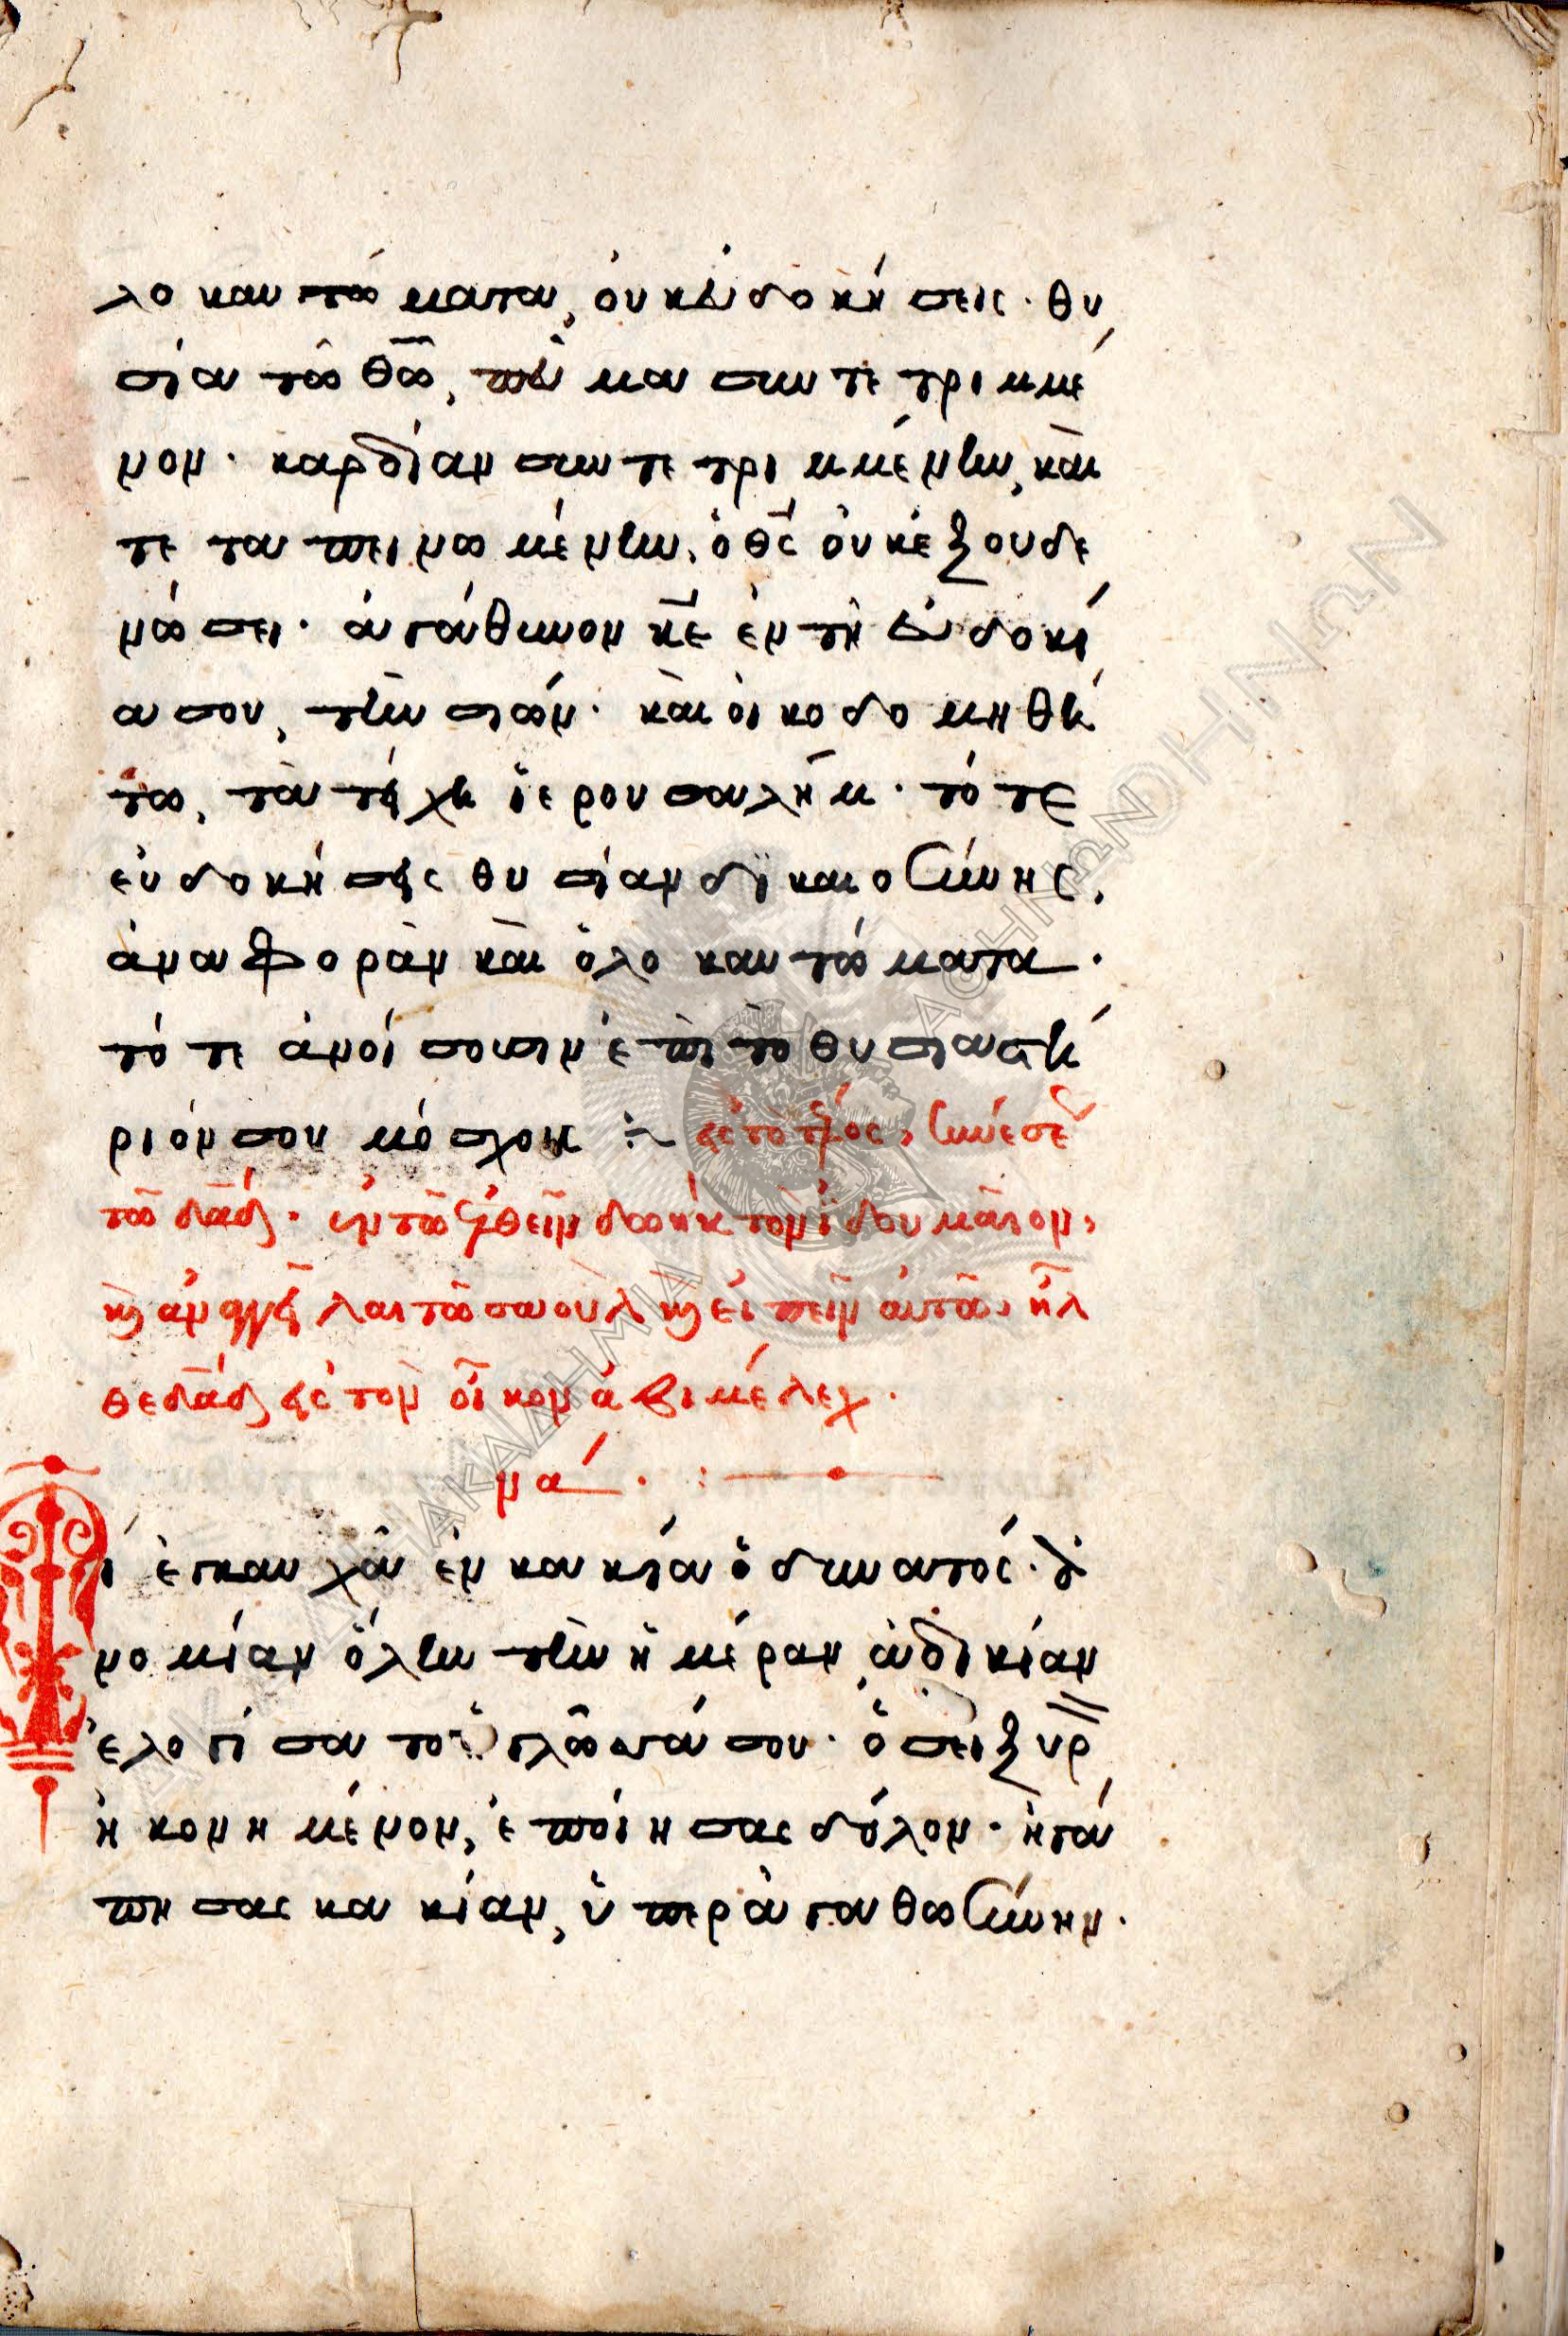 λοκαυτώματα, οὐκ εὐδοκήσεις· θυ
σία τῶ θῶ, πνα συντετριμμέ
νον· καρδίαν συντετριμμένην, καὶ
τεταπεινωμένην, ὁ θς οὐκ ἐξουδε
νώσει· ἀγάθυνον κε ἐν τῇ εὐδοκί
α σου, τὴν σιών· καὶ οἰκοδομηθή
τω, τὰ τείχη ἱερουσαλήμ· τότε
εὐδοκήσεις θυσίαν δικαιοσύνης,
ἀναφορὰν καὶ ὁλοκαυτώματα·
τότε ἀνοίσουσιν ἐπὶ τὸ θυσιαστή
ριόν σου μόσχους
εἰς τὸ τέλος, συνέσεως
τῶ δαδ· ἐν τῶ ἐλθεῖν δωὴκ τὸν ἰδουμαῖον,
καὶ ἀναγγεῖλαι τῶ σαοὺλ καὶ εἰπεῖν αὐτῶ, ἦλ
θε δαδ εἰς τὸν οἶκον ἀβιμέλεχ·
να·
Τί ἐγκαυχᾶ ἐν κακία ὁ δυνατός· ἀ
νομίαν ὅλην τὴν ἡμέραν, ἀδικίαν
ἐλογίσατο ἡ γλῶσσά σου· ὡσεὶ ξυρ
ἠκονημένον, ἐποίησας δόλον· ἠγά
πησας κακίαν, ὑπὲρ ἀγαθωσύνην·
ΑΚΑΔΗΜΙΑ ΑΘΗΝΩΝ